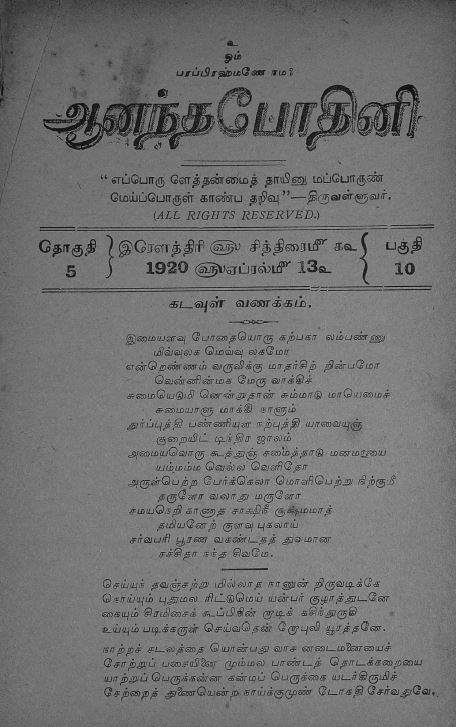 உ
ஓம்
பரப்பிரஹ்மணே நம:
ஆனந்தபோதினி
“எப்பொரு ளெத்தன்மைத் தாயினு மப்பொருண்
மெய்ப்பொருள் காண்ப தறிவு”—திருவள்ளுவர்.
(ALL RIGHTS RESERVED.)
தொகுதி 5
இரௌத்திரி ௵ சித்திரைமீ கஉ
1920 ௵ஏப்ரல்மீ 13உ
பகுதி 10
கடவுள் வணக்கம்.
இமையளவு போதையொரு கற்பகா லம்பண்ணு
மிவ்வுலக மெவ்வு லகமோ
என்றெண்ணம் வருவிக்கு மாதர்சிற் றின்பமோ
வென்னின்மக மேரு வாக்கிச்
சுமையெடுமி னென்றுதான் சும்மாடு மாயெமைச்
சுமையாளு மாக்கி நாளும்
துர்ப்புத்தி பண்ணியுள நற்புத்தி யாவையுஞ்
சூறையிட் டிந்திர ஜாலம்
அமையவொரு கூத்துஞ் சமைத்தாடு மனமாயை
யம்மம்ம வெல்ல வெளிதோ
அருள்பெற்ற பேர்க்கெலா மொளிபெற்று நிற்குமீ
தருளோ வலாது மருளோ
சமயநெறி காணாத சாக்ஷிநீ சூக்ஷ்மமாத்
தமியனேற் குளவு புகலாய்
சர்வபரி பூரண வகண்டதத் துவமான
சச்சிதா நந்த சிவமே.
செய்யுந் தவஞ்சற்று மில்லாத நானுன் றிருவடிக்கே
கொய்யும் புதுமல ரிட்டுமெய் யன்பர் குழாத்துடனே
கையும் சிரமிசைக் கூப்பிநின் றாடிக் கசிந்துருகி
உய்யும் படிக்கருள் செய்வதென் றோபுலி யூரத்தனே.
நாற்றச் சடலத்தை யொன்பது வாச னடைமனையைச்
சோற்றுப் பசையினை மும்மல பாண்டத் தொடக்கறையை
யாற்றுப் பெருக்கன்ன கன்மப் பெருக்கை யடர்கிருமிச்
சேற்றைத் துணையென்ற நாய்க்குமுண் டோகதி சேர்வதுவே.